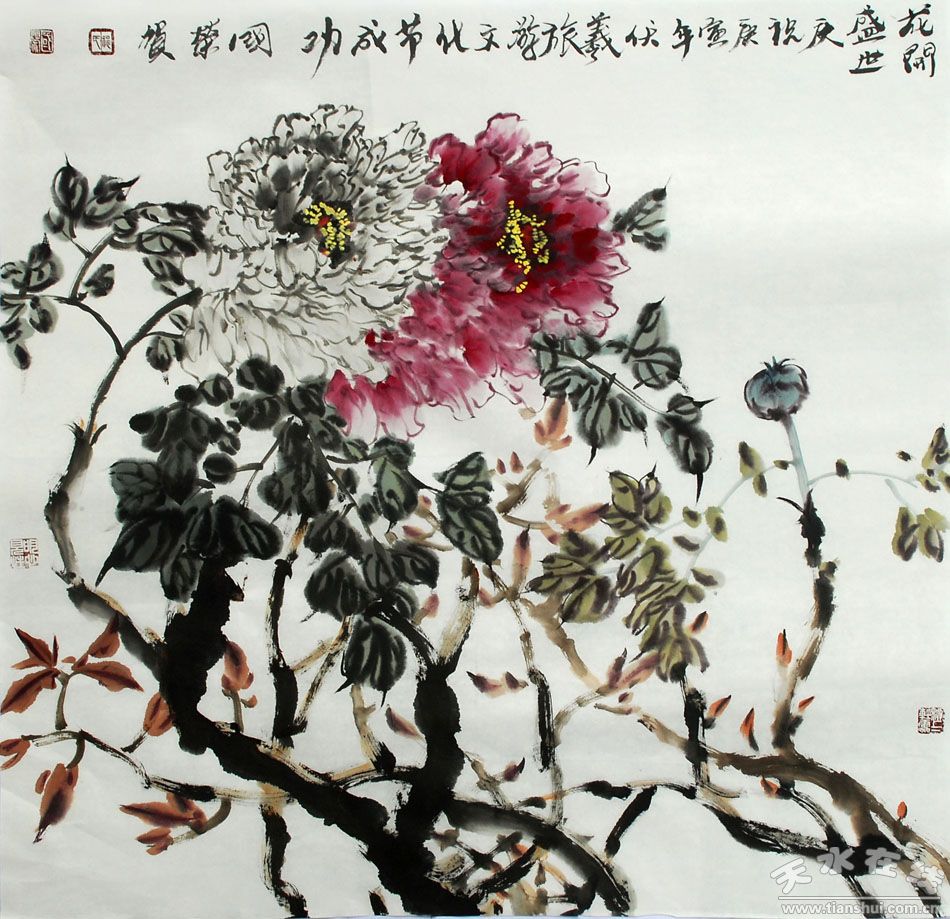 花開
盛世
庆祝庚寅年伏羲旅游文化节成功 国榮賀
天水在线
www.tianshui.com.cn